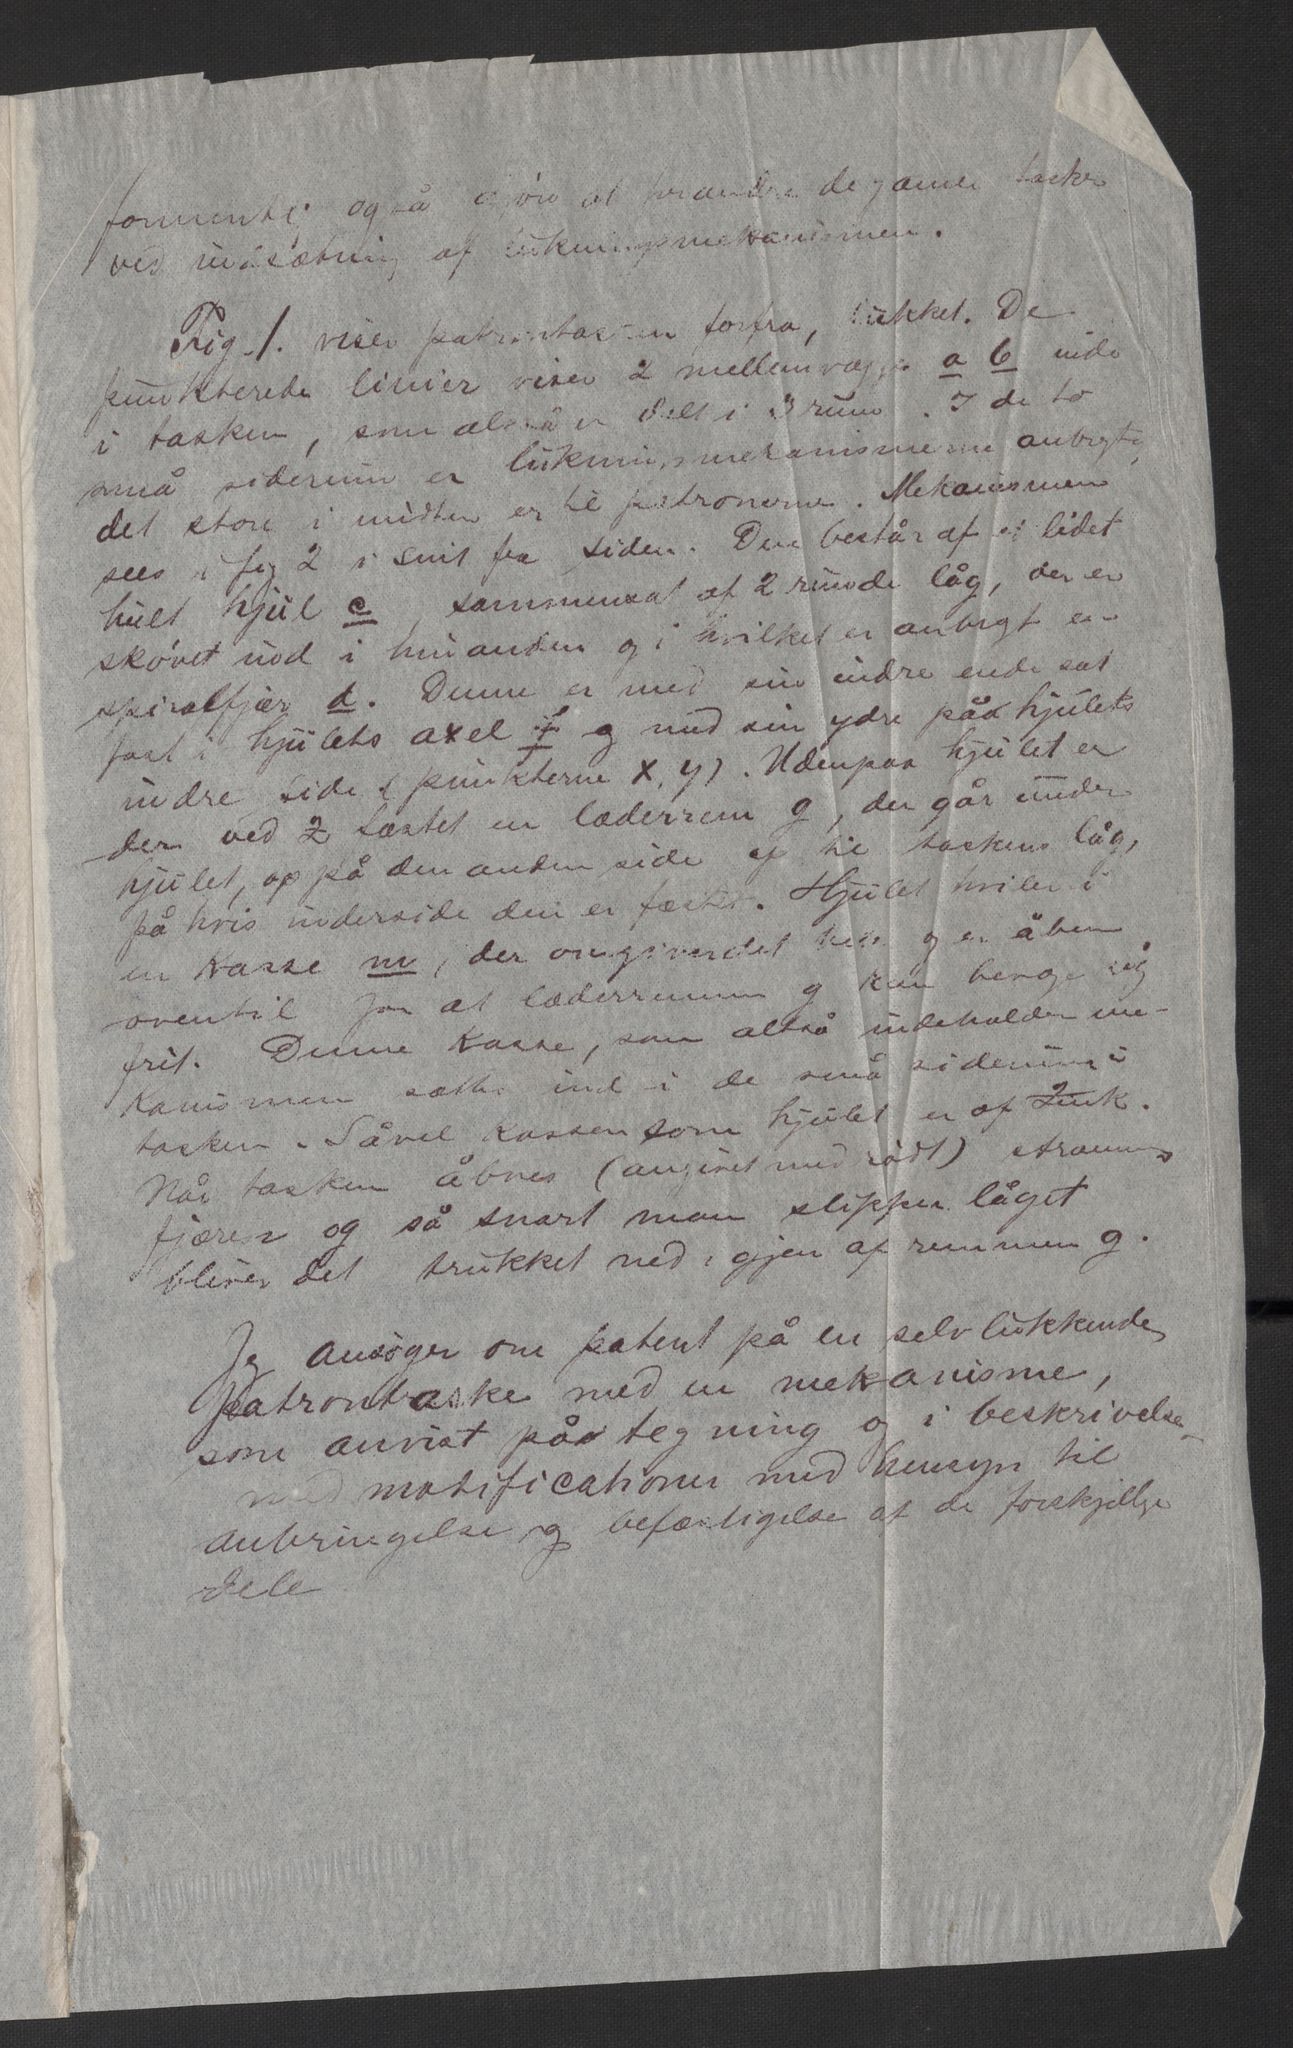 også at forandre de gamle tasker
ved indsætning af lukningsmekanismen.
Fig. 1. viser patrontasken forfra, lukket. De
punkterede linier viser 2 mellemvægge a b inde
i tasken, som altså er delt i 3 rum. I de to
små siderum er lukningsmekanismerne anbragt,
det store i midten er til patronerne. Mekanismen
sees i fig 2 i snit fra siden. Den består af et lidet
hult hjul c, sammensat af 2 runde låg, der er
skövet ind i hinanden og i hvilket er anbragt en
spiralfjær d. Denne er med sin indre ende sat
fast i hjulets axel f og med sin ydre på hjulets
indre side (punkterne x, y). Udenpaa hjulet er
der ved z fæstet en læderrem g, der går under
hjulet, op på den anden side og til taskens låg,
på hvis underside den er fæstet. Hjulet hviler i
en kasse m, der omgiver det helt og er åben
oventil for at læderremmen g kan bevæge sig
frit. Denne kasse, som altså indeholder me-
kanismen sættes ind i de små siderum i
tasken. Såvel kassen som hjulet er af Zink.
Når tasken åbnes (angivet med rödt) strammes
fjæren og så snart man slipper låget
bliver det trukket ned igjen af remmen g.
Jeg ansöger om patent på en selvlukkende
patrontaske med en mekanisme,
som anvist på tegning og i beskrivelse
med motificationer med hensyn til
anbringelse og befæstigelse af de forskjellige
dele